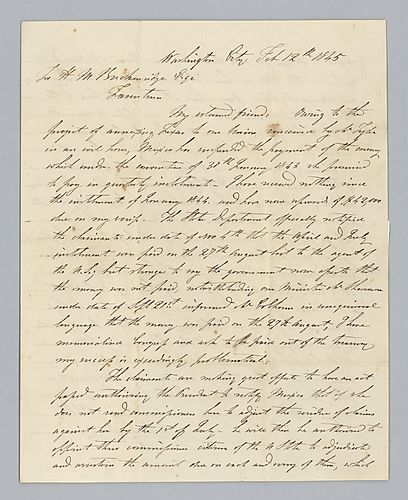 Washington City Feb 12th 1845
To H. M. Breckenridge Esqr
Tarentum
My esteemed friend. Owing to the
project of annexing Texas to our Union conceived by Mr Tyler
in an evil hour, Mexico has suspended the payment of the money
which under the convention of 30th January 1843 she promised
to pay in quarterly instalments. I have received nothing since
the instalment of January 1844, and have now upwards of
due on my receipts. The State Department officially notified
the claimants under date of Nov that the April and July
instalment was paid on the 27th August last to the agent of
the U.S. but strange to say the government now asserts that
the money was not paid, notwithstanding our Minister Mr Shannon
under date of Sept 21st informed Mr Calhoun in unequivocal
language that the money was paid on the 27th August. I have
memorialized Congress and ask to be paid out of the Treasury
my success is exceedingly problematical.
The claimants are making great efforts to have an act
passed authorising the President to notify Mexico that if she
does not send commissioners here to adjust the residue of claims
against her by the 1st of July he will then be authorised to
appoint three commissioners citizens of the U. States to adjudicate
and ascertain the amount due on each and every of them, which